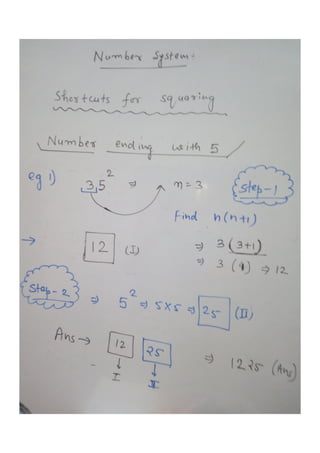 Number System.
Shortcuts for squaring
Number ending with 5
eg 1) 35² ⇒ n = 3 Step-1
Find n(n+1)
→ 12 (I) ⇒ 3(3+1)
⇒ 3(4) ⇒ 12
Step-2 ⇒ 5² ⇒ 5×5 ⇒ 25 (II)
Ans → 12 25 ⇒ 1225 (Ans)
I II